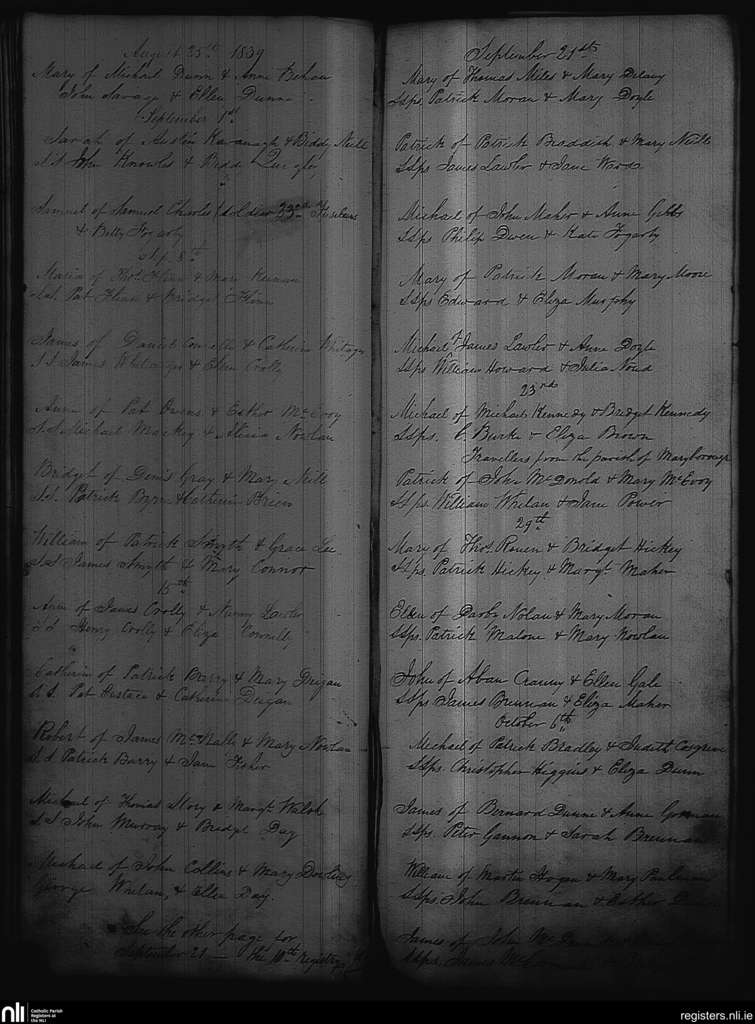 August 25th 1839
Mary of Michael Dunn & Anne Behan
John Savage & Ellen Dunn
September 1st
Sarah of Austin Kavanagh & Biddy Neill
S.S John Knowles & Bidd Quigley
Samuel of Samuel Charles (soldier 33rd Fusileers
& Betty Fogarty
Sep. 8th
Maria of Thos. Flinn & Mary Keenan
S.S. Pat Flinn & Bridget Flinn
James of Daniel Connelle & Catherin
S.S James & Ellen Crolly
Anne of Pat Owens & Esther McEvoy
S.S. Michael Mackey & Alicia Nowlan
Bridget of Denis Gray & Mary Neill
S.S. Patrick Byrn & Catherin Brien
William of Patrick Smyth & Grace Lee
S.S James Smyth & Mary Connor
15th
Anne of James Crolly & Nanny Lawler
S.S Henry Crolly & Eliza Connelly
Catherin of Patrick Barry & Mary Deegan
S.S. Pat Eustace & Catherin Deegan
Robert of James & Mary Nowlan
S.S Patrick Barry & Jane Fisher
Michael of Thomas Story & Margt. Walsh
S.S John Murray & Bridget Day
Michael of John Collins & Mary Dowling
George Whelan, & Ellen Day.
See the other page for
September 21 — the 10th registry
September 21st
Mary of Thomas Miles & Mary Delany
SSps. Patrick Moran & Mary Doyle
Patrick of Patrick Braddish & Mary Neill
SSps James Lawler & Jane Wood
Michael of John Maher & Anne Gibbs
SSps Philip Dwen & Kate Fogarty
Mary of Patrick Moran & Mary Moore
SSps Edward & Eliza Murphy
Michael of James Lawler & Anne Doyle
SSps William Howard & Julia Noud
23rd
Michael of Michael Kennedy & Bridget Kennedy
SSps. C. Burke & Eliza Brown
Travellers from the parish of Maryborough
Patrick of John McDonold & Mary McEvoy
SSps William Whelan & Jane Power
29th
Mary of Thos. Rouen & Bridget Hickey
SSps. Patrick Hickey & Margt. Maher
Ellen of Darby Nolan & Mary Moran
SSps. Patrick Malone & Mary Nowlan
John of Aban Cranny & Ellen Gale
SSps James Brennan & Eliza Maher
October 6th
Michael of Patrick Bradley & Judith Cosgrive
SSps. Christopher Higgins & Eliza Dunn
James of Bernard Dunne & Anne Gorman
SSps. Peter Gannon & Sarah Brennan
William of Martin Hogan & Mary
SSps. John Brennan & Esther
James of John
SSps. James
nli
Catholic Parish
Registers at
the NLI
registers.nli.ie